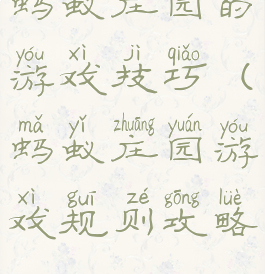 蚂蚁庄园的
yóu xì jì qiǎo
游戏技巧（
mǎ yǐ zhuāng yuán yóu
蚂蚁庄园游
xì guī zé gōng lüè
戏规则攻略